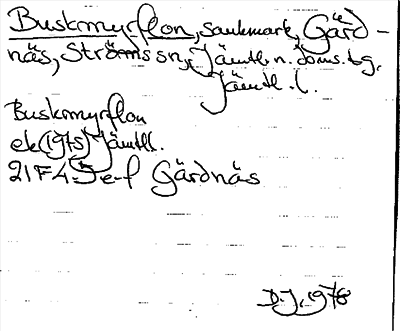 Buskmyrflon, sankmark, Gärd-
näs, Ströms sn, Jämtl. n. doms.bg.
Jämtl. l.
Buskmyrflon
ek (1975) Jämtl.
21F4-5e-f Gärdnäs
D.J. 1978